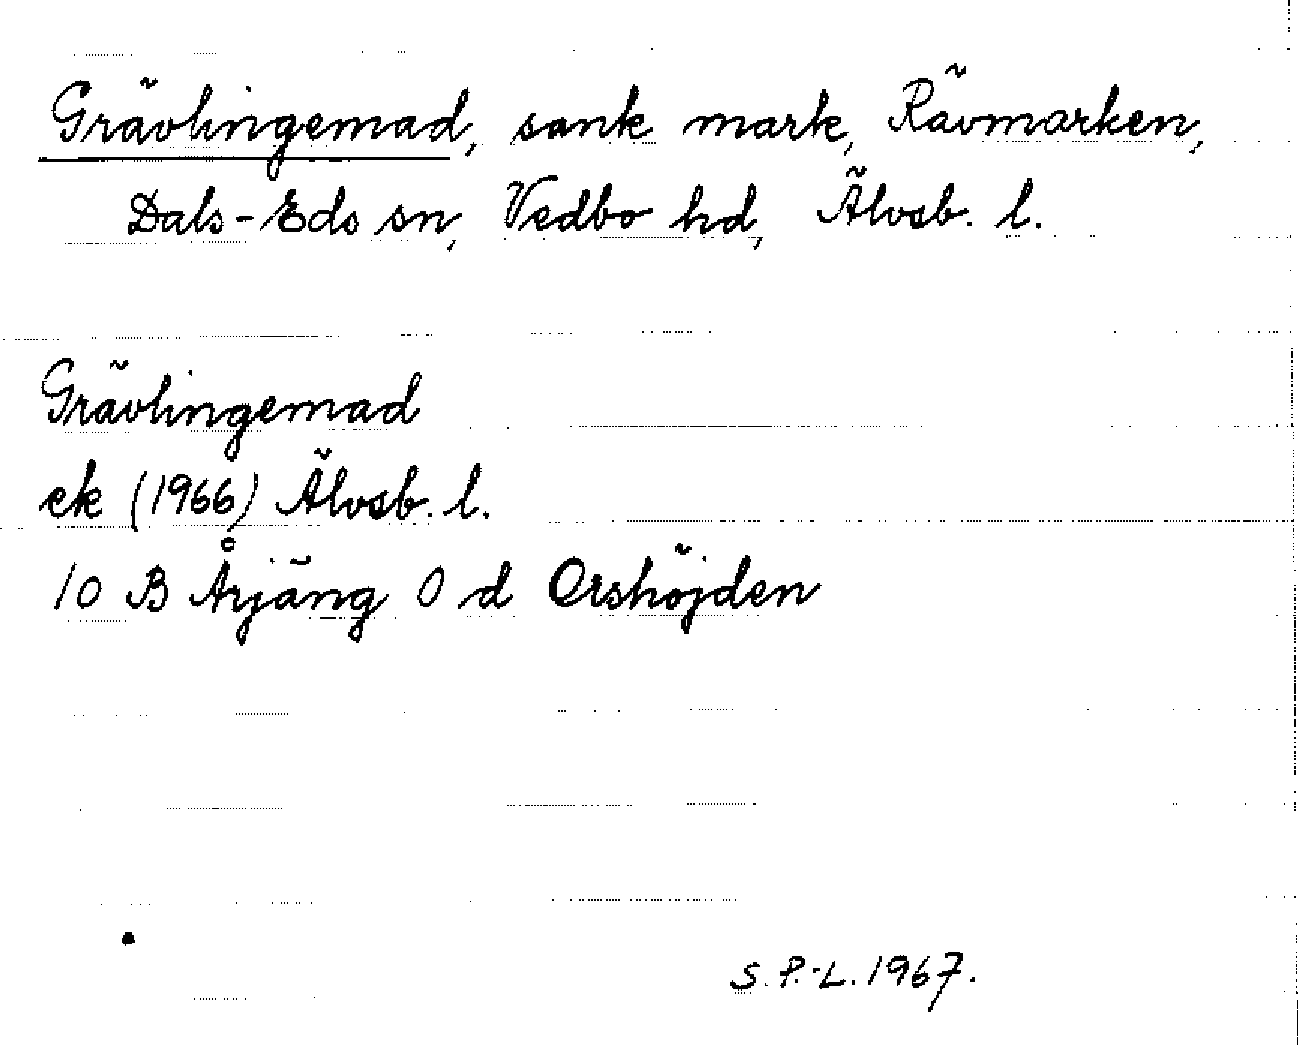 Grävlingemad, sank mark, Rävmarken,
Dals-Eds sn, Vedbo hd, Älvsb. l.
Grävlingemad
ek (1966) Älvsb. l.
10 B Årjäng 0 d Orshöjden
S. P.-L. 1967.